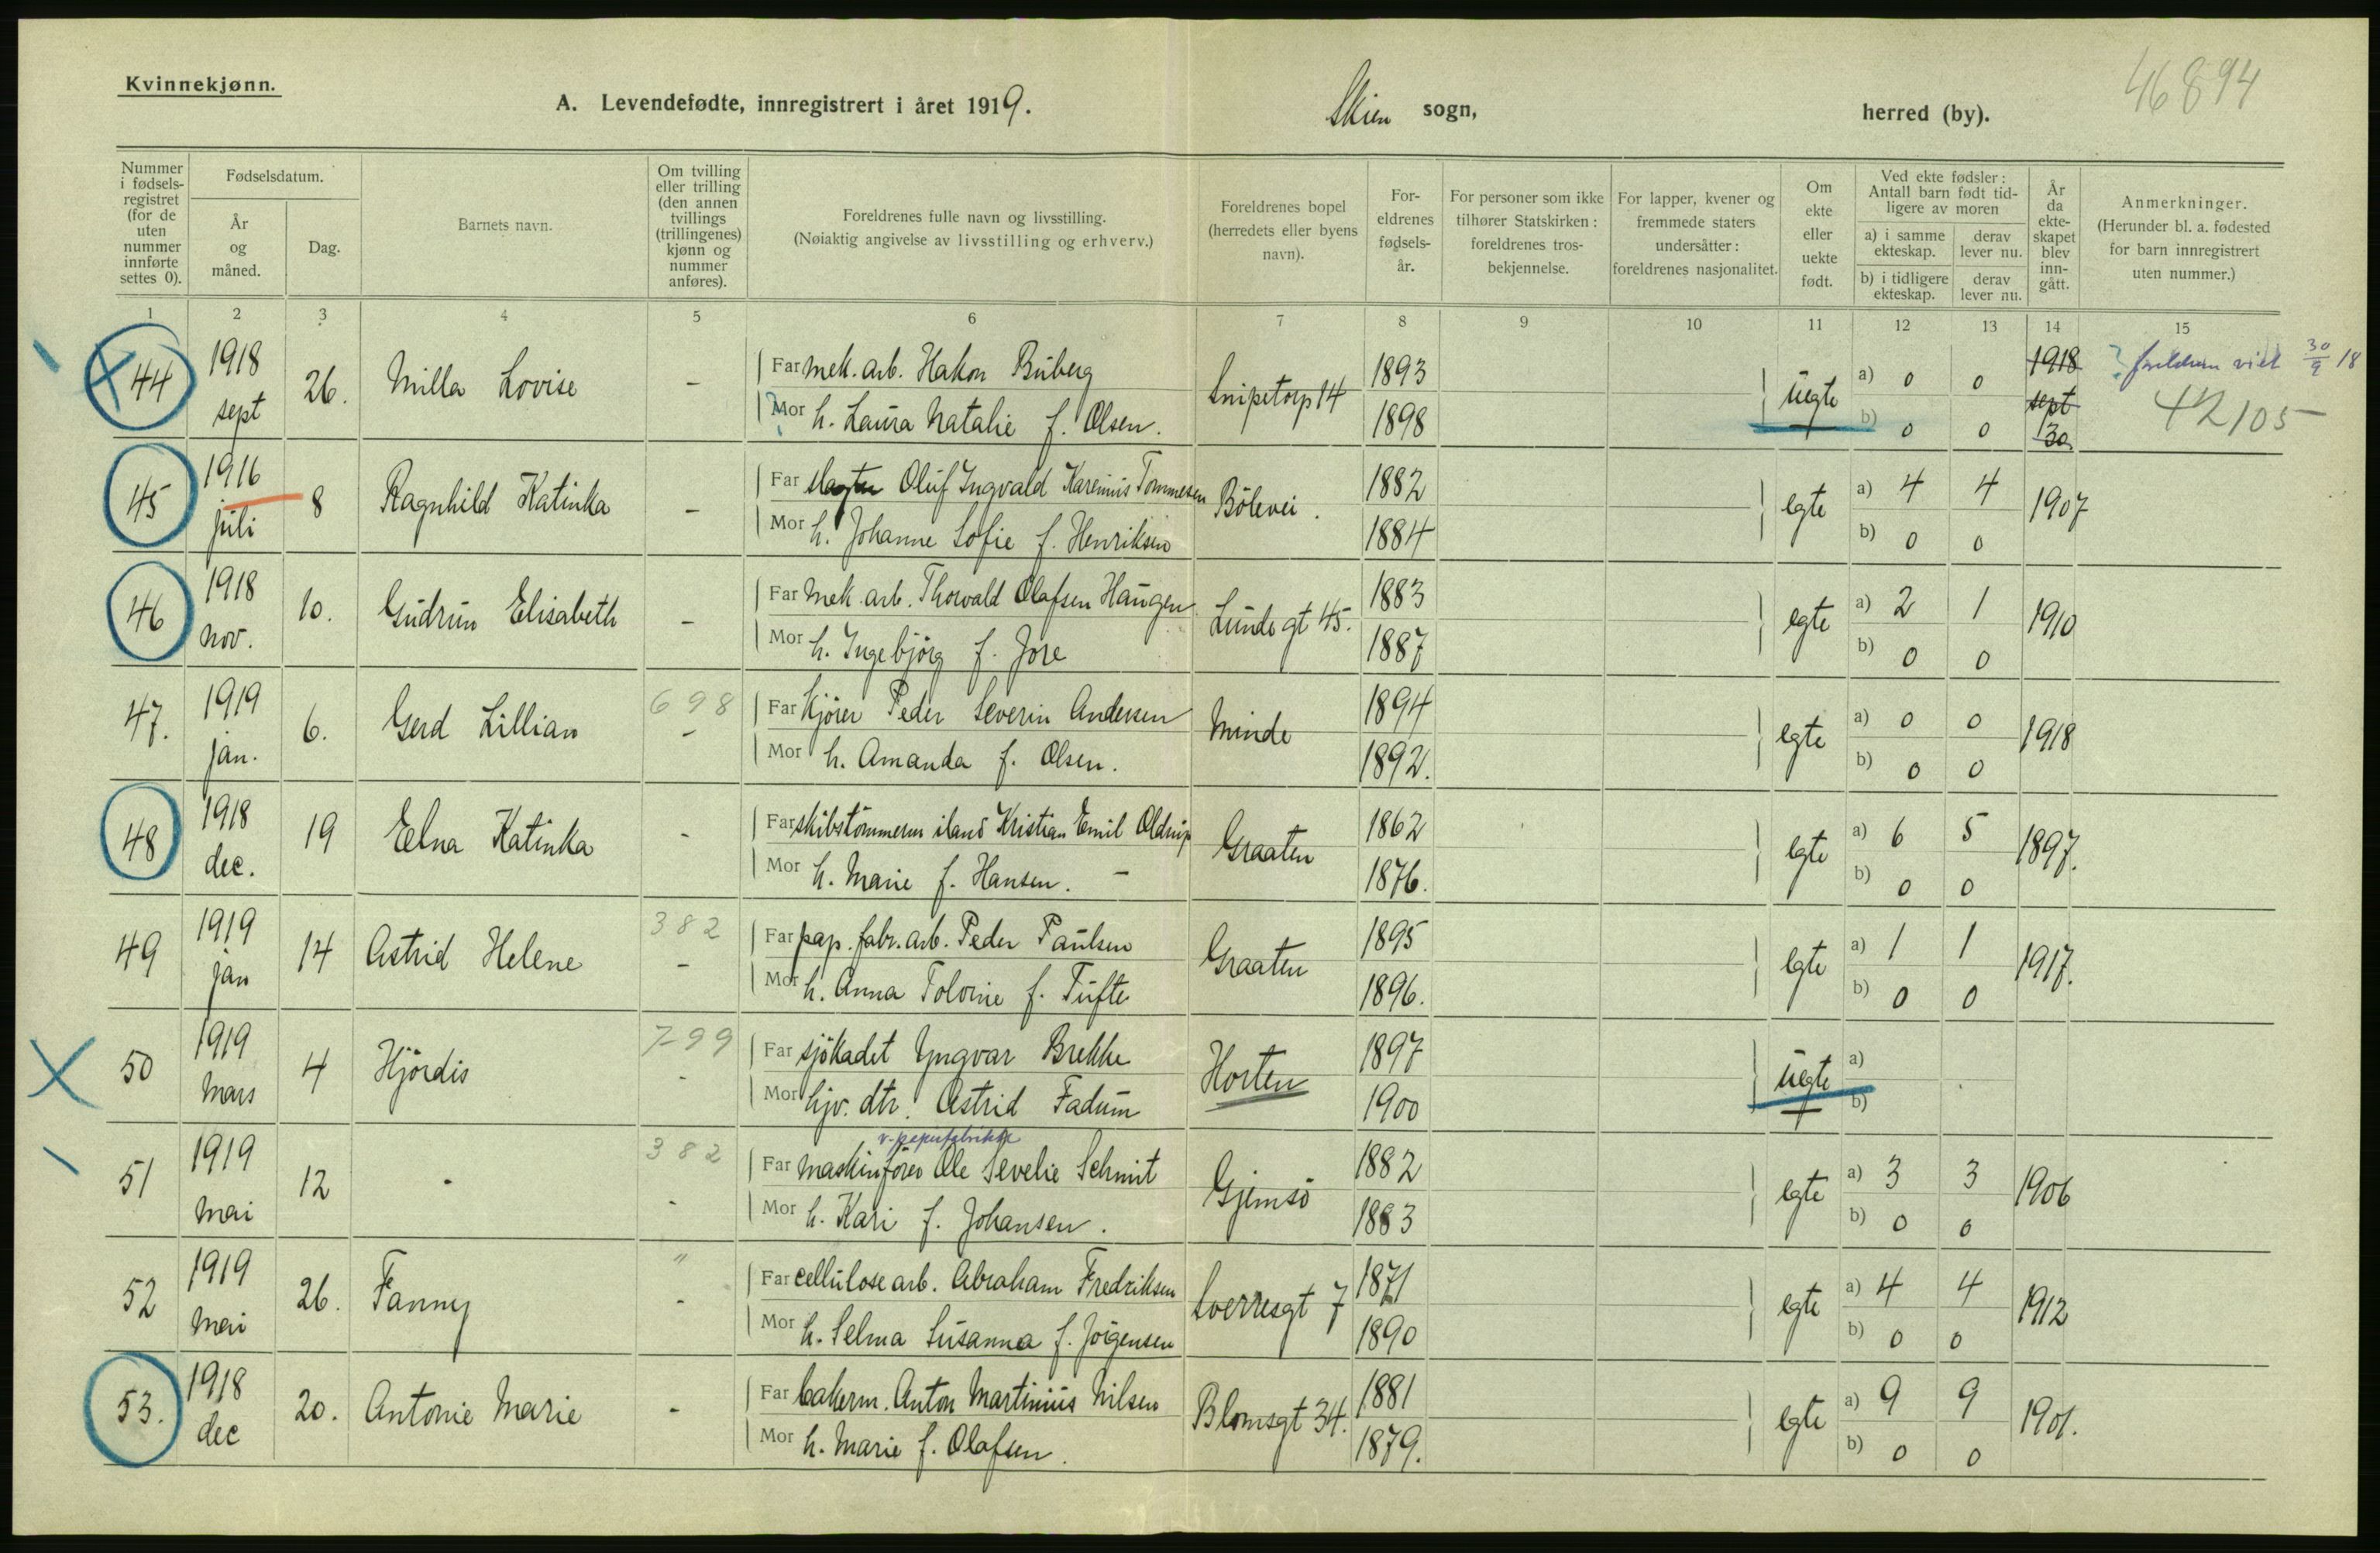 46894
Kvinnekjønn.
A. Levendefødte, innregistrert i året 1919. Skien sogn, herred (by).
Nummer i fødsels-registret (for de uten nummer innførte settes 0).
Fødselsdatum.
År og måned.
Dag.
Barnets navn.
Om tvilling eller trilling (den annen tvillings (trillingenes) kjønn og nummer anføres).
Foreldrenes fulle navn og livsstilling.
(Nøiaktig angivelse av livsstilling og erhverv.)
Foreldrenes bopel (herredets eller byens navn).
For-eldrenes fødsels-år.
For personer som ikke tilhører Statskirken: foreldrenes tros-bekjennelse.
For lapper, kvener og fremmede staters undersåtter: foreldrenes nasjonalitet.
Om ekte eller uekte født.
Ved ekte fødsler: Antall barn født tid-ligere av moren
a) i samme ekteskap. derav lever nu.
b) i tidligere ekteskap. derav lever nu.
År da ekte-skapet blev inn-gått.
Anmerkninger.
(Herunder bl. a. fødested for barn innregistrert uten nummer.)
1 2 3 4 5 6 7 8 9 10 11 12 13 14 15
44 1918 sept 26. Milla Lovise - Far mek. arb. Hakon Buberg Snipetorp 14 1893 uegte a) 0 0 1918 sept 30 ? foreldrene viet 30/9 18
Mor h. Laura Natalie f. Olsen. 1898 b) 0 0 42105
45 1916 juli 8 Ragnhild Katinka - Far slagter Oluf Ingvald Karenius Tommesen Bölevei. 1882 egte a) 4 4 1907
Mor h. Johanne Sofie f. Henriksen 1884 b) 0 0
46 1918 nov. 10. Gudrun Elisabeth - Far mek. arb. Thorvald Olafsen Haugen Lundegt 45. 1883 egte a) 2 1 1910
Mor h. Ingebjörg f. Jore 1887 b) 0 0
47. 1919 jan. 6. Gerd Lillian 698 - Far kjörer Peder Severin Andersen Minde 1894 egte a) 0 0 1918
Mor h. Amanda f. Olsen. 1892. b) 0 0
48 1918 dec. 19 Edna Katinka - Far skibstömmerm iland Kristian Emil Oldrup Graaten 1862 egte a) 6 5 1897.
Mor h. Marie f. Hansen. - 1876. b) 0 0
49 1919 jan 14 Astrid Helene 382 - Far pap. fabr. arb. Peder Paulsen Graaten 1895 egte a) 1 1 1917.
Mor h. Anna Tolorine f. Tufte 1896. b) 0 0
50 1919 mars 4 Hjördis 799 - Far sjökadet Yngvar Brekke Horten 1897 uegte a)
Mor hjv. dtr. Astrid Fadum 1900 b)
v. papirfabrikk
51 1919 mai 12 - 382 - Far maskinförer Ole Sevelie Schmit Gjemsö 1882 egte a) 3 3 1906
Mor h. Kari f. Johansen. 1883 b) 0 0
52 1919 mai 26. Fanny " - Far cellulosearb. Abraham Fredriksen Sverresgt 7 1871 egte a) 4 4 1912
Mor h. Selma Susanna f. Jörgensen 1890 b) 0 0
53. 1918 dec 20. Antonie Marie - Far bakerm. Anton Martinius Nilsen Blomsgt 34. 1881 egte a) 9 9 1901.
Mor h. Marie f. Olafsen. 1879. b) 0 0